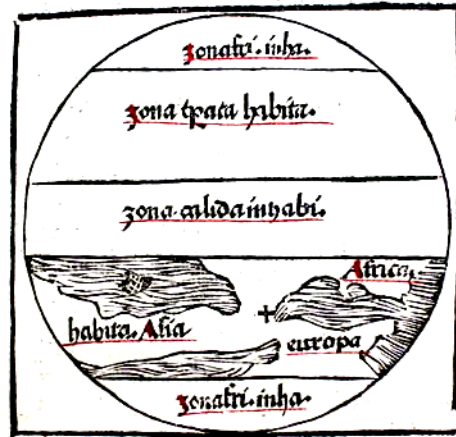 zona fri · inha ·
zona tp̄ata habita ·
zona · calida inhabi ·
Africa ·
habita · Asia
europa
zona fri · inha ·